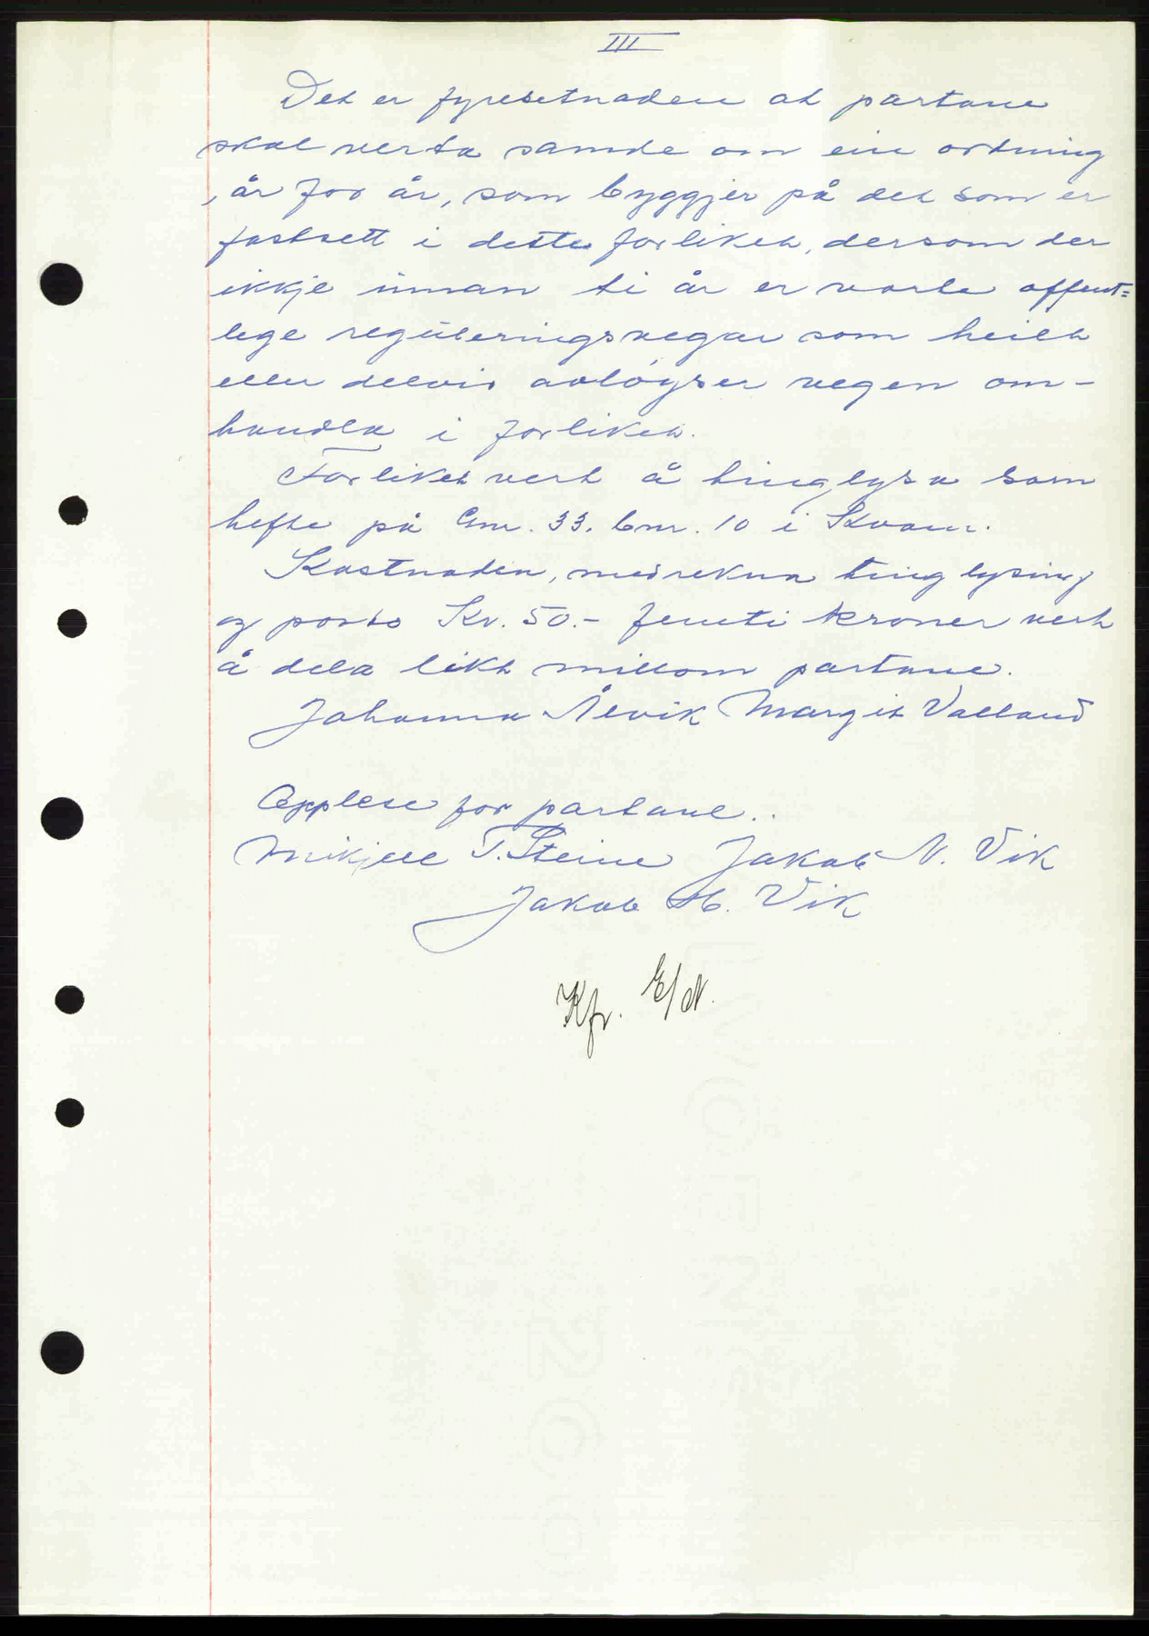 III
Det er fyresetnaden at partane
skal verta samde om ein ordning
, år for år, som byggjer på det som er
fastsett i dette forliket, dersom der
ikkje innan ti år er vorte offent=
lege reguleringsvegar som heilt
eller delvis avløyser vegen om-
handla i forliket.
Forliket vert å tinglysa som
hefte på Gnr. 33. bnr. 10 i Kvam.
Kostnaden, medrekna tinglysing
og porto Kr. 50.- femti kroner vert
å dela likt millom partane.
Johanna Ålvik Margit Valland
Opplese for partane.
Mikjell T. Steine Jakob N. Vik
Jakob H. Vik
Kfr. E/N.